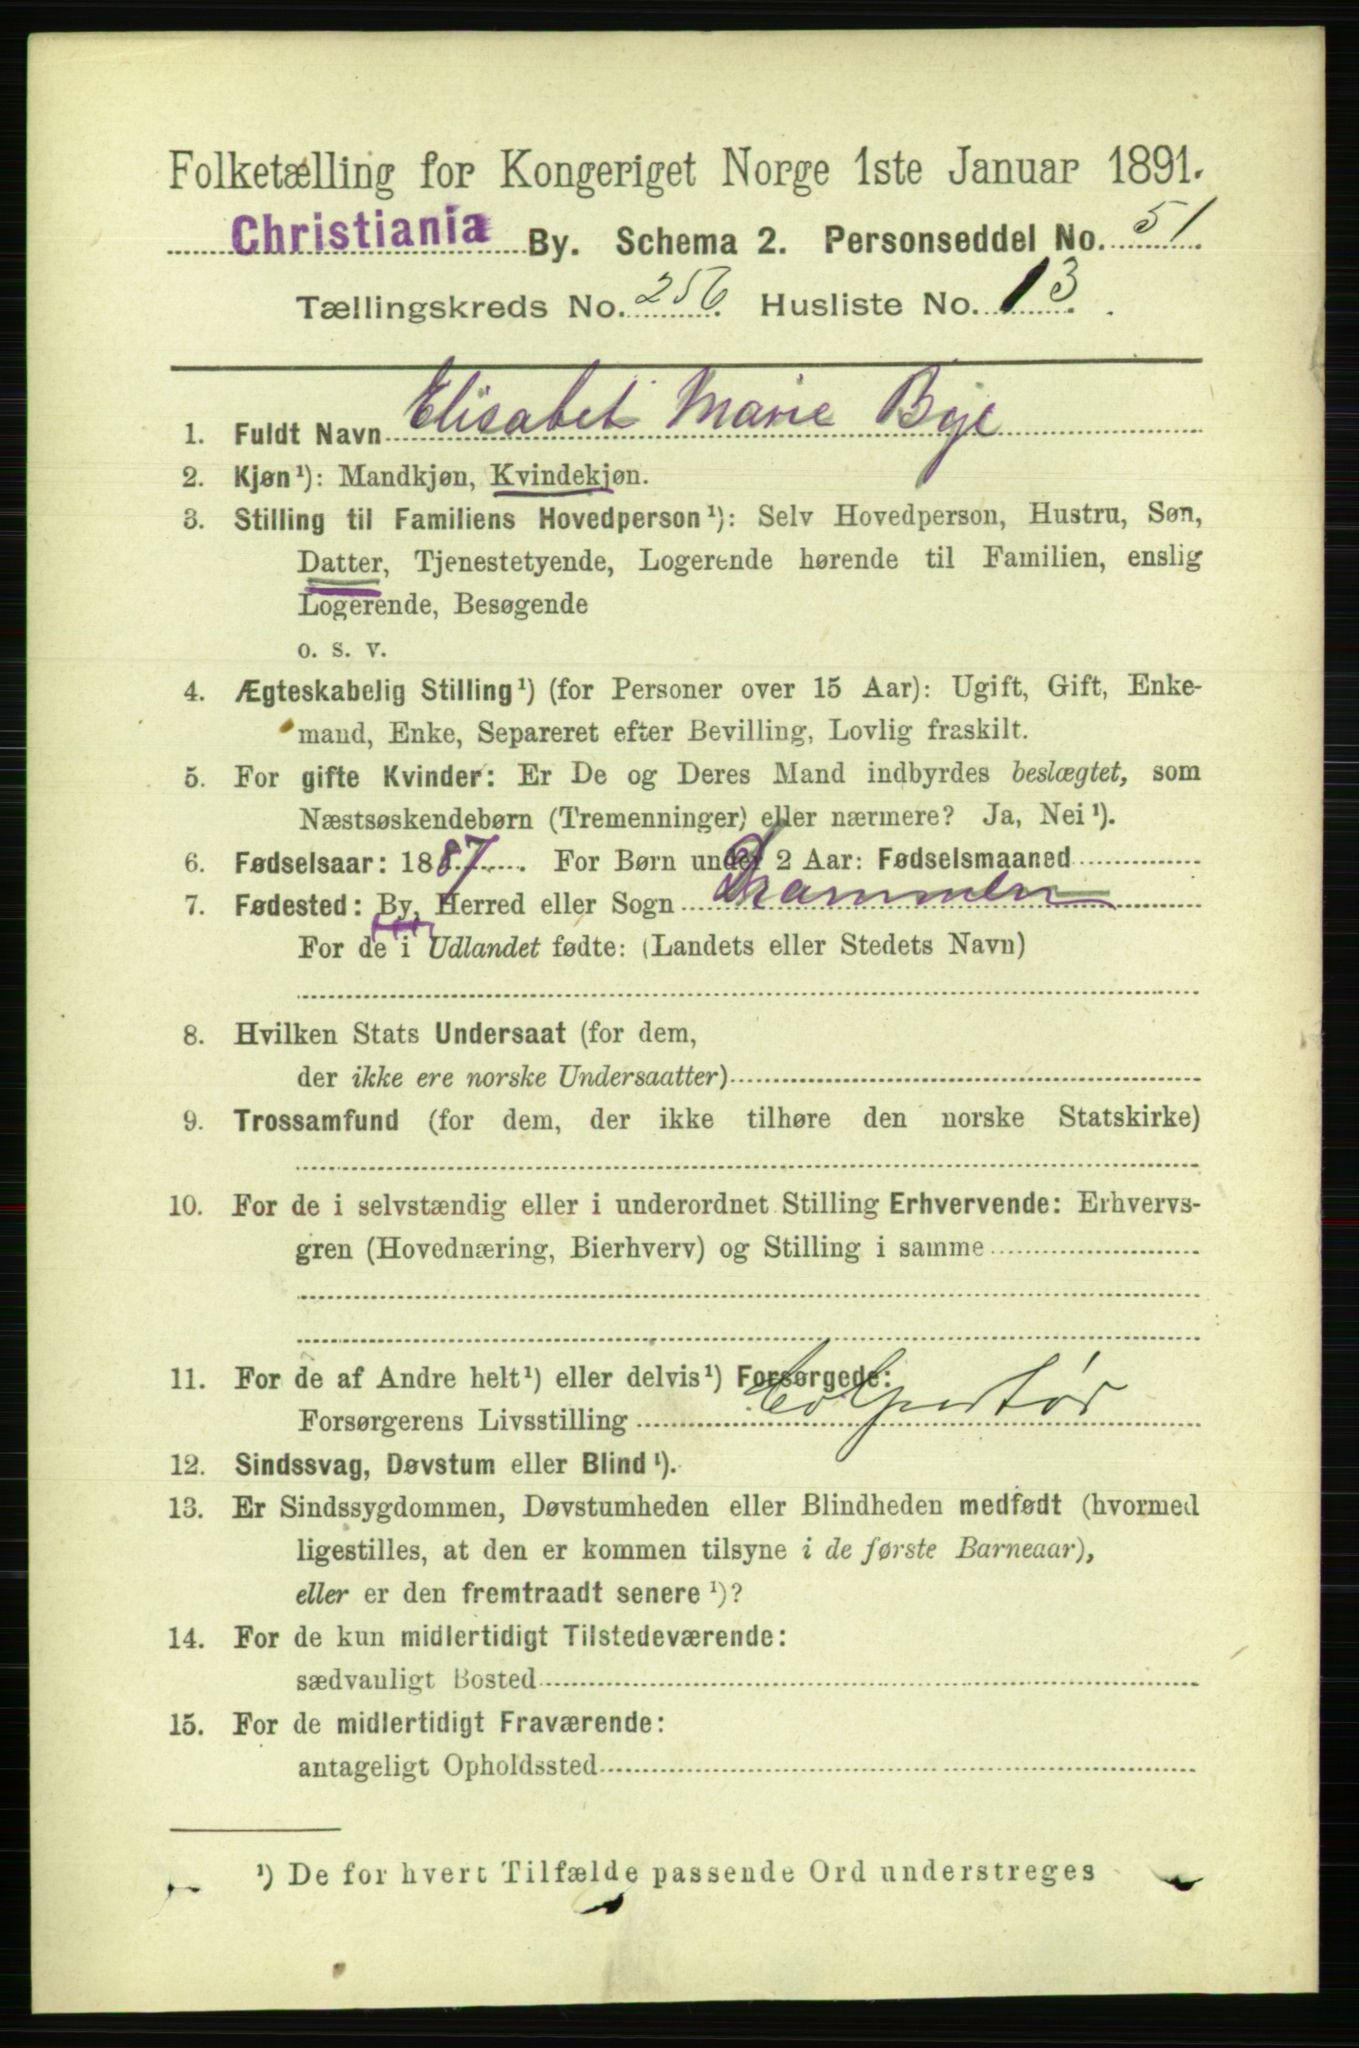 Folketælling for Kongeriget Norge 1ste Januar 1891.
Christiania By. Schema 2. Personseddel No. 51
Tællingskreds No. 256 Husliste No. 13.
1. Fuldt Navn Elisabet Marie Bye
2. Kjøn¹): Mandkjøn, Kvindekjøn.
3. Stilling til Familiens Hovedperson¹): Selv Hovedperson, Hustru, Søn,
Datter, Tjenestetyende, Logerende hørende til Familien, enslig
Logerende, Besøgende
o. s. v.
4. Ægteskabelig Stilling¹) (for Personer over 15 Aar): Ugift, Gift, Enke-
mand, Enke, Separeret efter Bevilling, Lovlig fraskilt.
5. For gifte Kvinder: Er De og Deres Mand indbyrdes beslægtet, som
Næstsøskendebørn (Tremenninger) eller nærmere? Ja, Nei¹).
6. Fødselsaar: 1887. For Børn under 2 Aar: Fødselsmaaned
7. Fødested: By, Herred eller Sogn Drammen
For de i Udlandet fødte: (Landets eller Stedets Navn)
8. Hvilken Stats Undersaat (for dem,
der ikke ere norske Undersaatter)
9. Trossamfund (for dem, der ikke tilhøre den norske Statskirke)
10. For de i selvstændig eller i underordnet Stilling Erhvervende: Erhvervs-
gren (Hovednæring, Bierhverv) og Stilling i samme
11. For de af Andre helt¹) eller delvis¹) Forsørgede:
Forsørgerens Livsstilling Colportør
12. Sindssvag, Døvstum eller Blind¹).
13. Er Sindssygdommen, Døvstumheden eller Blindheden medfødt (hvormed
ligestilles, at den er kommen tilsyne i de første Barneaar),
eller er den fremtraadt senere¹)?
14. For de kun midlertidigt Tilstedeværende:
sædvanligt Bosted
15. For de midlertidigt Fraværende:
antageligt Opholdssted
¹) De for hvert Tilfælde passende Ord understreges